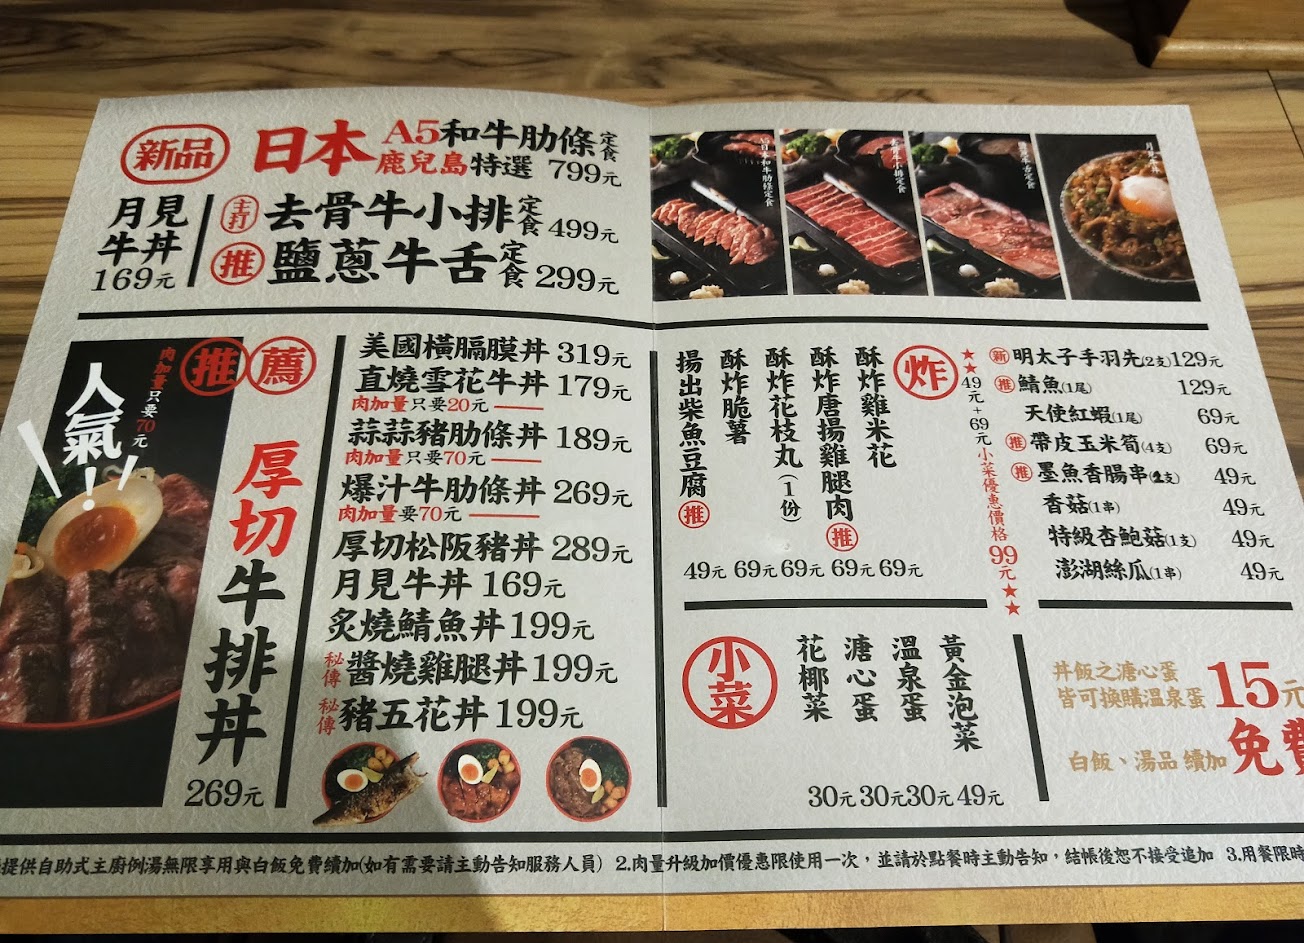 新品
日本
A5和牛肋條定食
鹿兒島特選 799元
月見牛丼
169元
主打 去骨牛小排定食 499元
推 鹽蔥牛舌定食 299元
人氣!!
肉加量只要70元
推薦
厚切牛排丼
269元
美國橫膈膜丼 319元
直燒雪花牛丼 179元
肉加量只要20元
蒜蒜豬肋條丼 189元
肉加量只要70元
爆汁牛肋條丼 269元
肉加量要70元
厚切松阪豬丼 289元
月見牛丼 169元
炙燒鯖魚丼 199元
秘傳 醬燒雞腿丼 199元
秘傳 豬五花丼 199元
炸
酥炸雞米花 69元
酥炸唐揚雞腿肉 推 69元
酥炸花枝丸(1份) 69元
酥炸脆薯 69元
揚出柴魚豆腐 推 49元
★★49元+69元小菜優惠價格99元★★
新 明太子手羽先(2支) 129元
推 鯖魚(1尾) 129元
天使紅蝦(1尾) 69元
推 帶皮玉米筍(4支) 69元
推 墨魚香腸串(2支) 49元
香菇(1串) 49元
特級杏鮑菇(1支) 49元
澎湖絲瓜(1串) 49元
小菜
黃金泡菜 49元
溫泉蛋 30元
溏心蛋 30元
花椰菜 30元
丼飯之溏心蛋
皆可換購溫泉蛋 15元
白飯、湯品 續加 免費
提供自助式主廚例湯無限享用與白飯免費續加(如有需要請主動告知服務人員) 2.肉量升級加價優惠限使用一次，並請於點餐時主動告知，結帳後恕不接受追加 3.用餐限時